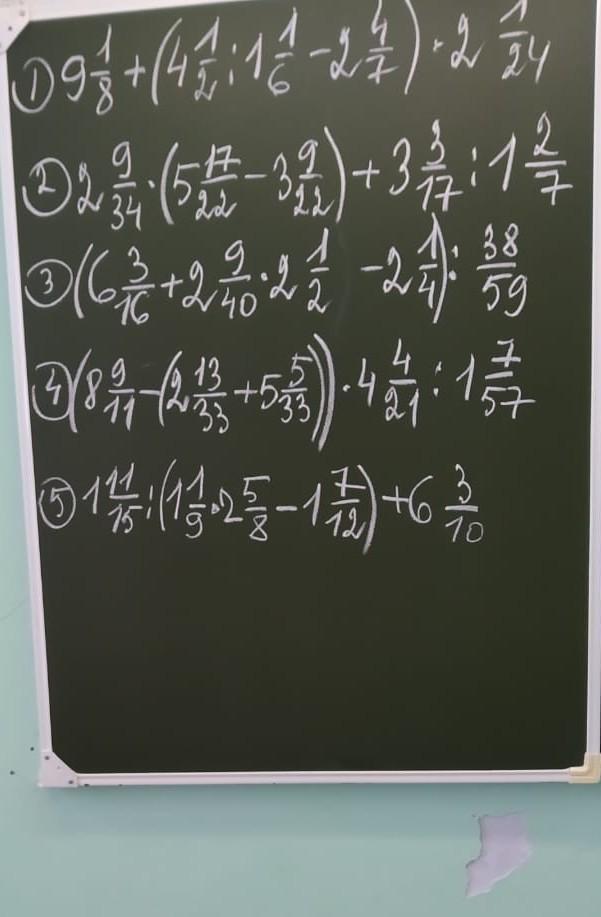 ① 9 1/8 + (4 1/2 : 1 1/6 - 2 4/7) · 2 1/24
② 2 9/34 · (5 17/22 - 3 9/22) + 3 3/17 : 1 2/7
③ (6 3/16 + 2 9/40 · 2 1/2 - 2 1/4) : 38/59
④ (8 9/11 - (2 13/33 + 5 5/33)) · 4 4/21 : 1 7/57
⑤ 1 11/15 : (1 1/9 · 2 5/8 - 1 7/12) + 6 3/10